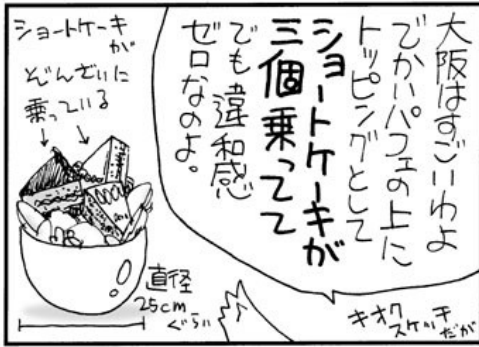 大阪はすごいわよ
でかいパフェの上に
トッピングとして
ショートケーキが
三個乗ってて
でも違和感
ゼロなのよ。
ショートケーキが
ぞんざいに
乗っている
直径
25cm
ぐらい
キオク
スケッチ
だが